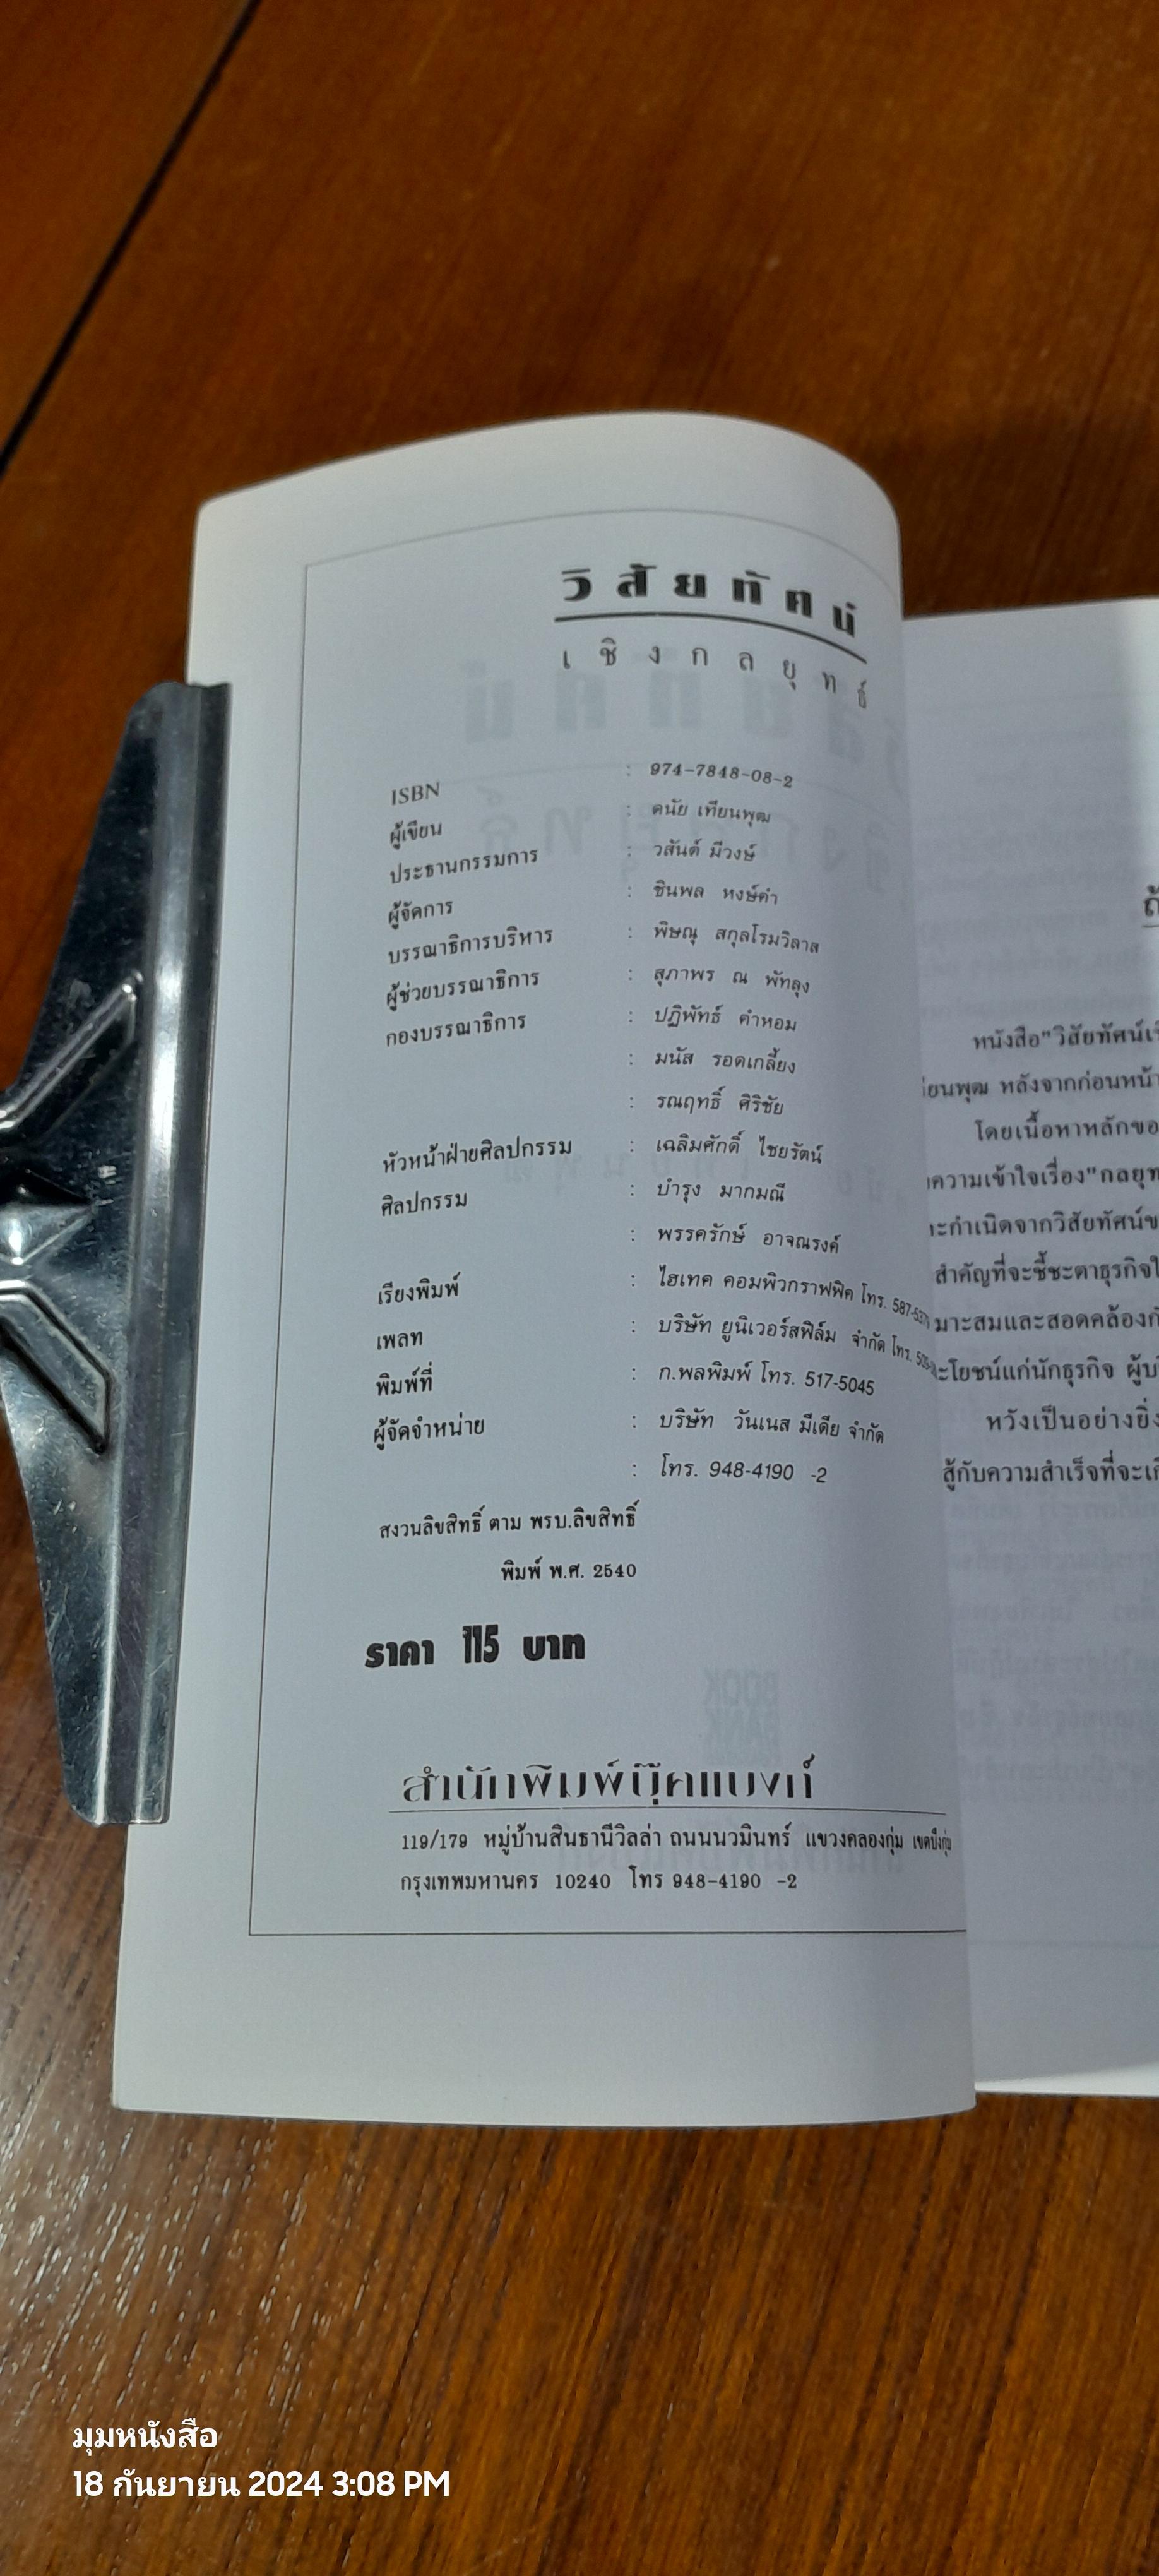 วิสัยทัศน์
เชิงกลยุทธ์
ISBN : 974-7848-08-2
ผู้เขียน : ดนัย เทียนพุฒ
ประธานกรรมการ : วสันต์ มีวงษ์
ผู้จัดการ : ชินพล หงษ์คำ
บรรณาธิการบริหาร : พิษณุ สกุลโรมวิลาส
ผู้ช่วยบรรณาธิการ : สุภาพร ณ พัทลุง
กองบรรณาธิการ : ปฏิพัทธ์ คำหอม
: มนัส รอดเกลี้ยง
: รณฤทธิ์ ศิริชัย
หัวหน้าฝ่ายศิลปกรรม : เฉลิมศักดิ์ ไชยรัตน์
ศิลปกรรม : บำรุง มากมณี
: พรรครักษ์ อาจณรงค์
เรียงพิมพ์ : ไฮเทค คอมพิวกราฟฟิค โทร.
เพลท : บริษัท ยูนิเวอร์สฟิล์ม จำกัด โทร.
พิมพ์ที่ : ก.พลพิมพ์ โทร. 517-5045
ผู้จัดจำหน่าย : บริษัท วันเนส มีเดีย จำกัด
: โทร. 948-4190 -2
สงวนลิขสิทธิ์ ตาม พรบ.ลิขสิทธิ์
พิมพ์ พ.ศ. 2540
ราคา 115 บาท
สำนักพิมพ์บุ๊คแบงก์
119/179 หมู่บ้านสินธานีวิลล่า ถนนนวมินทร์ แขวงคลองกุ่ม เขตบึงกุ่ม
กรุงเทพมหานคร 10240 โทร 948-4190 -2
หนังสือ"วิสัยทัศน์
ยนพุฒ หลังจากก่อนหน้า
โดยเนื้อหาหลักขอ
ความเข้าใจเรื่อง"กลยุท
ะกำเนิดจากวิสัยทัศน์ข
สำคัญที่จะชี้ชะตาธุรกิจ
มาะสมและสอดคล้อง
ะโยชน์แก่นักธุรกิจ
หวังเป็นอย่างยิ่ง
สู้กับความสำเร็จที่จะ
มุมหนังสือ
18 กันยายน 2024 3:08 PM